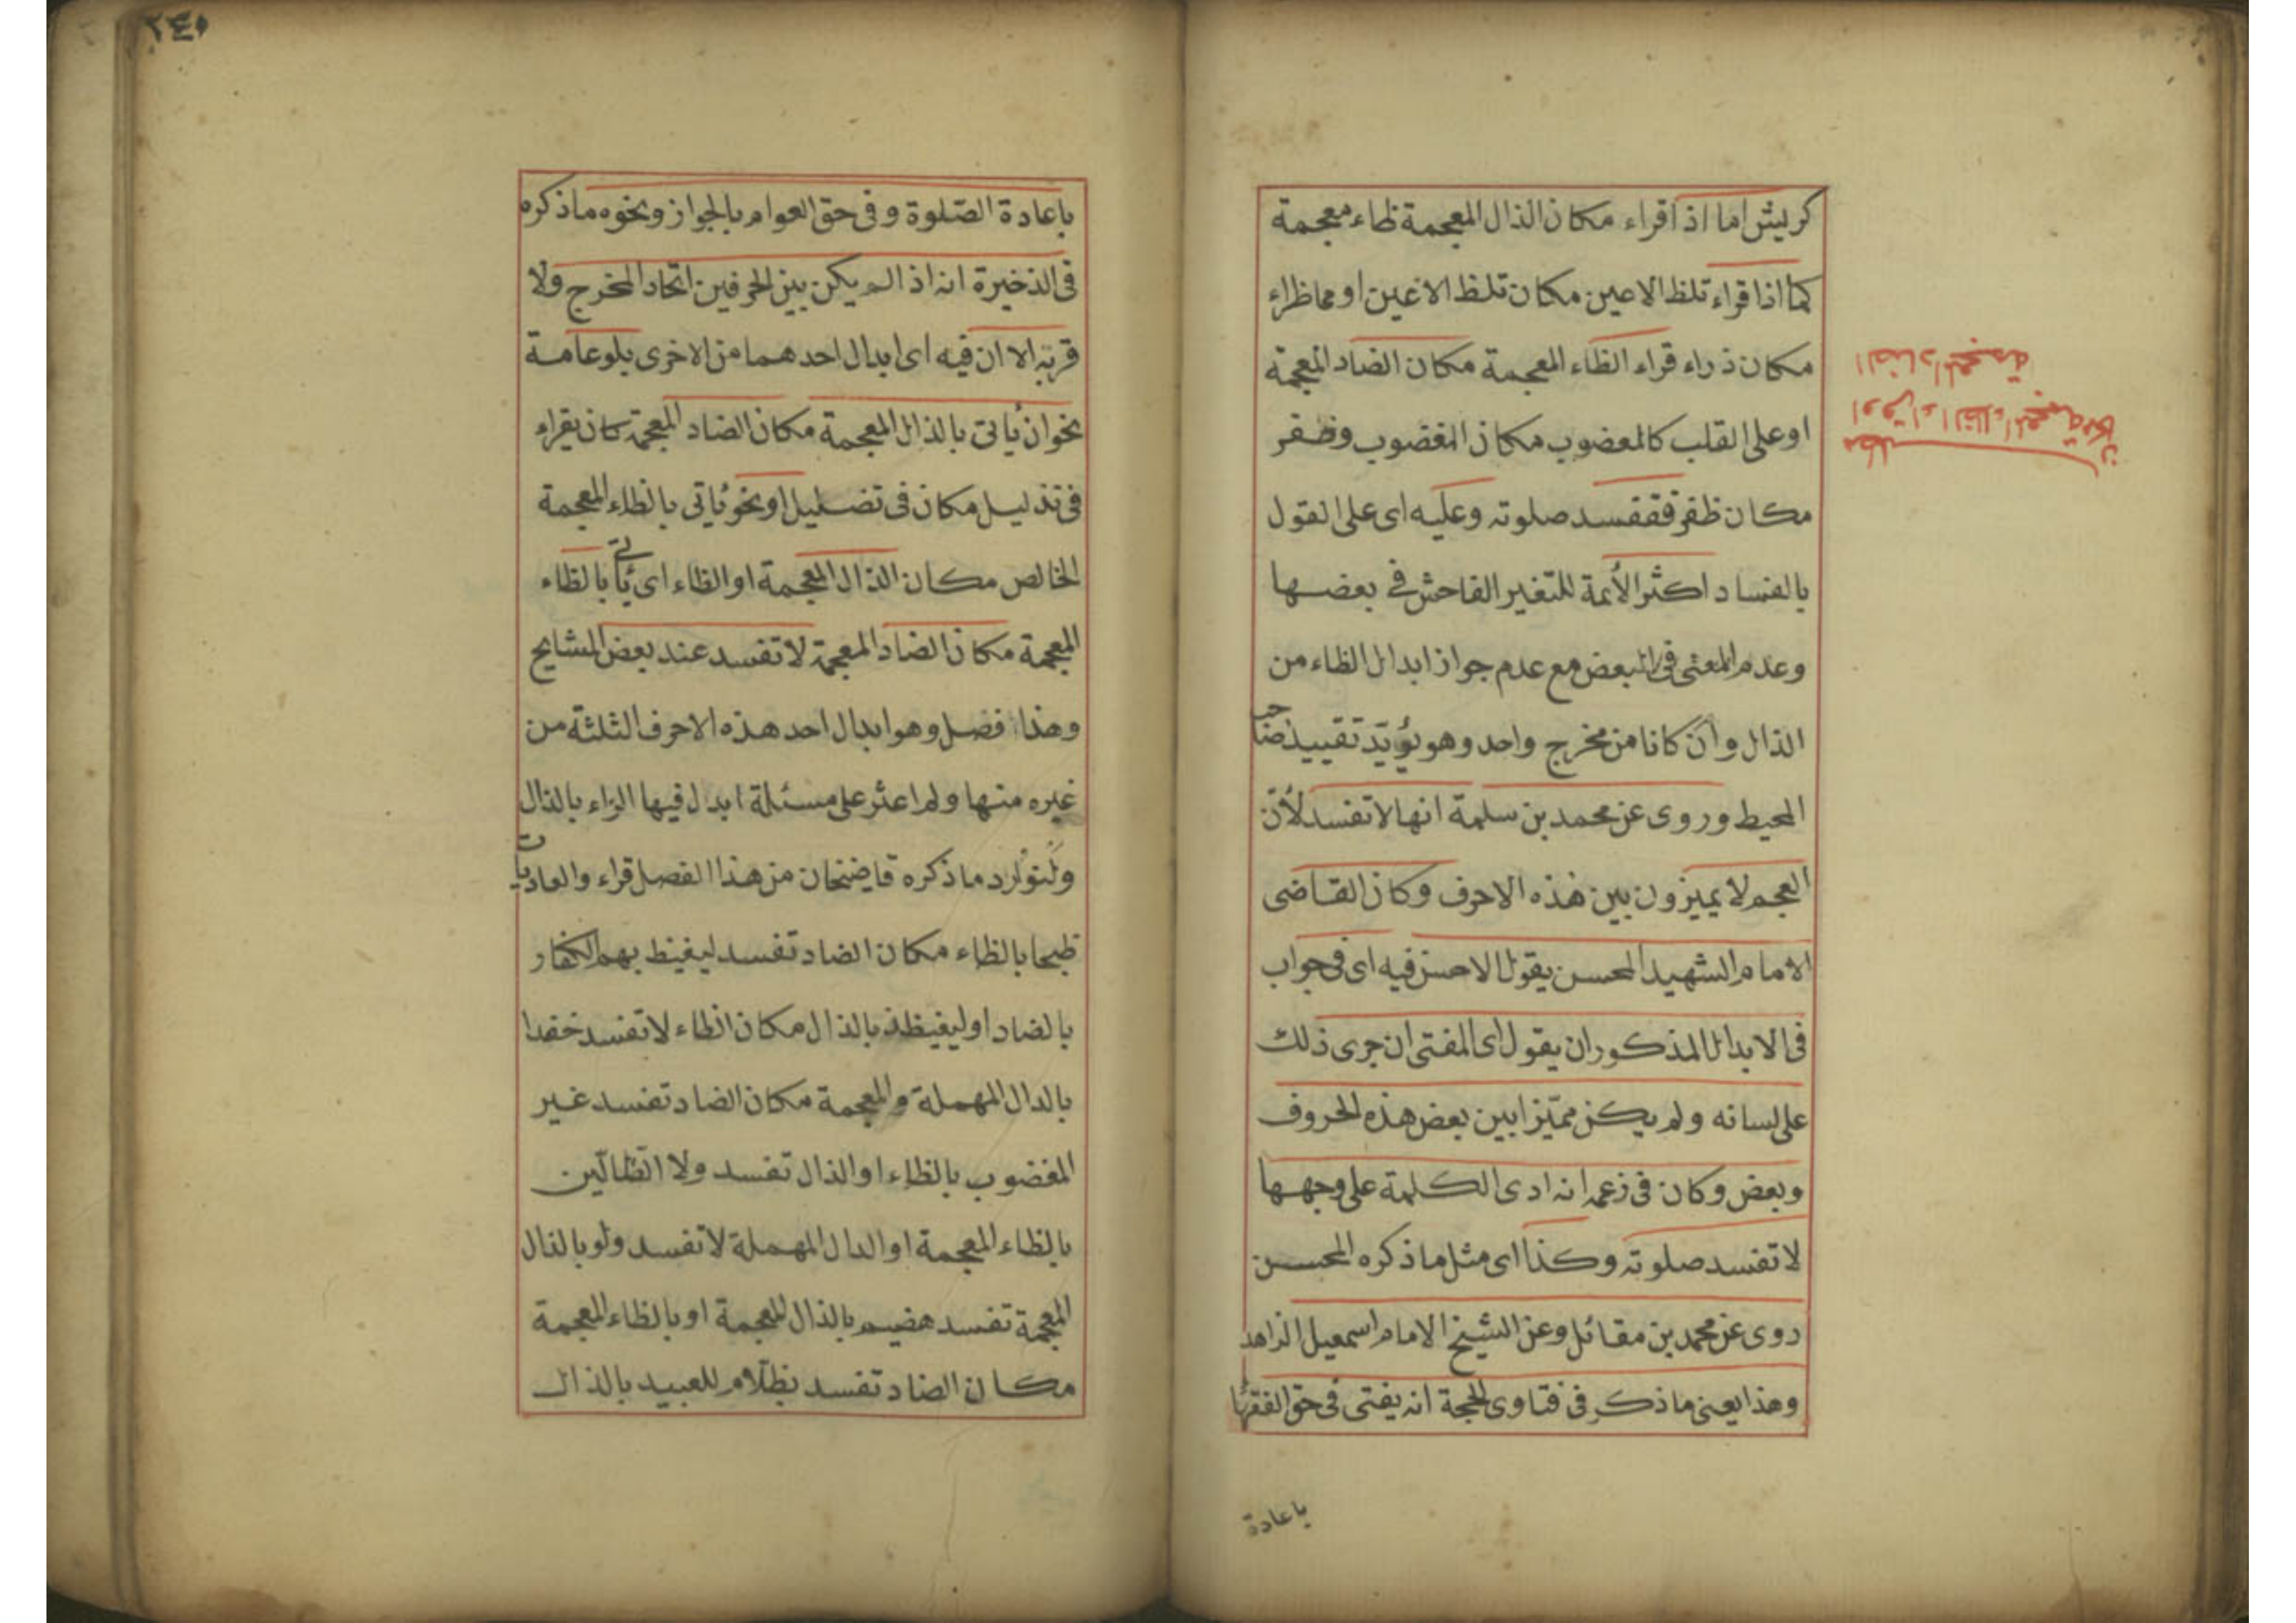 كريش اما اذا قراء مكان الذال المعجمة ظاء معجمة
كما اذا قراء تلظ الاعين مكان تلظ الاغين او مماظراء
مكان ذراء قراء الظاء المعجمة مكان الضاد المعجمة
او على القلب كالمعضوب مكان المغضوب وضفر
مكان ظفر فقفسد صلوته وعليه اى على القول
بالفساد اكثر الأئمة للتغير الفاحش فى بعضها
وعدم المعنى فى البعض مع عدم جواز ابدال الظاء من
الذال وان كانا من مخرج واحد وهو يؤيّد تقييد صاحب
المحيط وروى عن محمد بن سلمة انها لا تفسد لأنّ
العجم لا يميزون بين هذه الاحرف وكان القاضى
الامام الشهيد المحسن يقول الاحسن فيه اى فى جواب
فى الابدال المذكور ان يقول اى المفتى ان جرى ذلك
على لسانه ولم يكن مميّزا بين بعض هذه الحروف
وبعض وكان فى زعمه انه ادى الكلمة على وجهها
لا تفسد صلوته وكذا اى مثل ما ذكره المحسن
روى عن محمد بن مقاتل وعن الشيخ الامام اسمعيل الزاهد
وهذا يعنى ما ذكر فى فتاوى الحجة انه يفتى فى حق الفقهاء
باعادة
مطلب
او قراء الظاء المعجمة مكان
الضاد المعجمة
٢٤٠
باعادة الصّلوة وفى حق العوام بالجواز ونحوه ما ذكره
فى الذخيرة انه اذا لم يكن بين الحرفين اتحاد المخرج ولا
قربه الا ان فيه اى ابدال احدهما من الاخرى بلوعامة
نحوان يأتى بالذال المعجمة مكان الضاد المعجمة كان يقراء
فى تذليل مكان فى تضليل او نحو يأتى بالظاء المعجمة
الخالص مكان الذال المعجمة او الظاء اى يأتى بالظاء
المعجمة مكان الضاد المعجمة لا تفسد عند بعض المشايخ
وهذا فصل وهو ابدال احد هذه الاحرف الثلثة من
غيره منها ولم اعثر على مسئلة ابدل فيها الزاء بالذال
ولنورد ما ذكره قاضيخان من هذا الفصل قراء والعاديات
ظبحا بالظاء مكان الضاد تفسد ليغيظ بهم الكفار
بالضاد او ليغيظذ بالذال مكان الظاء لا تفسد خفدا
بالدال المهملة والمعجمة مكان الضاد تفسد غير
المغضوب بالظاء او الذال تفسد ولا الظالّين
بالظاء المعجمة او الدال المهملة لا تفسد ولو بالذال
المعجمة تفسد هضيم بالذال المعجمة او بالظاء المعجمة
مكان الضاد تفسد بظلّام للعبيد بالذال